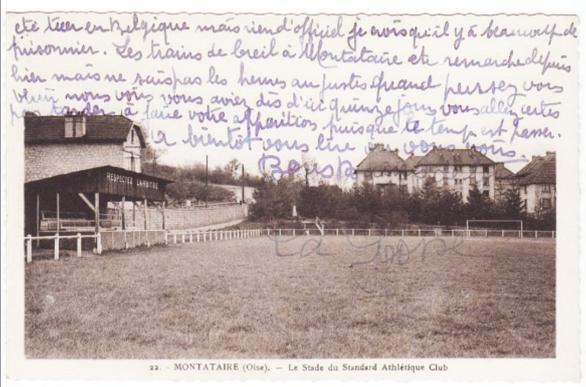 été tuer en Belgique mais rien d'officiel je crois qu'il y a beaucoup de
prisonnier. Les trains de breil à Montataire etc remarche depuis
hier mais ne sais pas les heures au justes Quand pensez vous
venir nous voir vous aviez dis d'ici quinze jours vous allez certes
pas tarder à faire votre apparition puisque le temp est passer.
A bientôt vous lire
Bons
RESPECTEZ L'ARBITRE
22. - MONTATAIRE (Oise). - Le Stade du Standard Athlétique Club